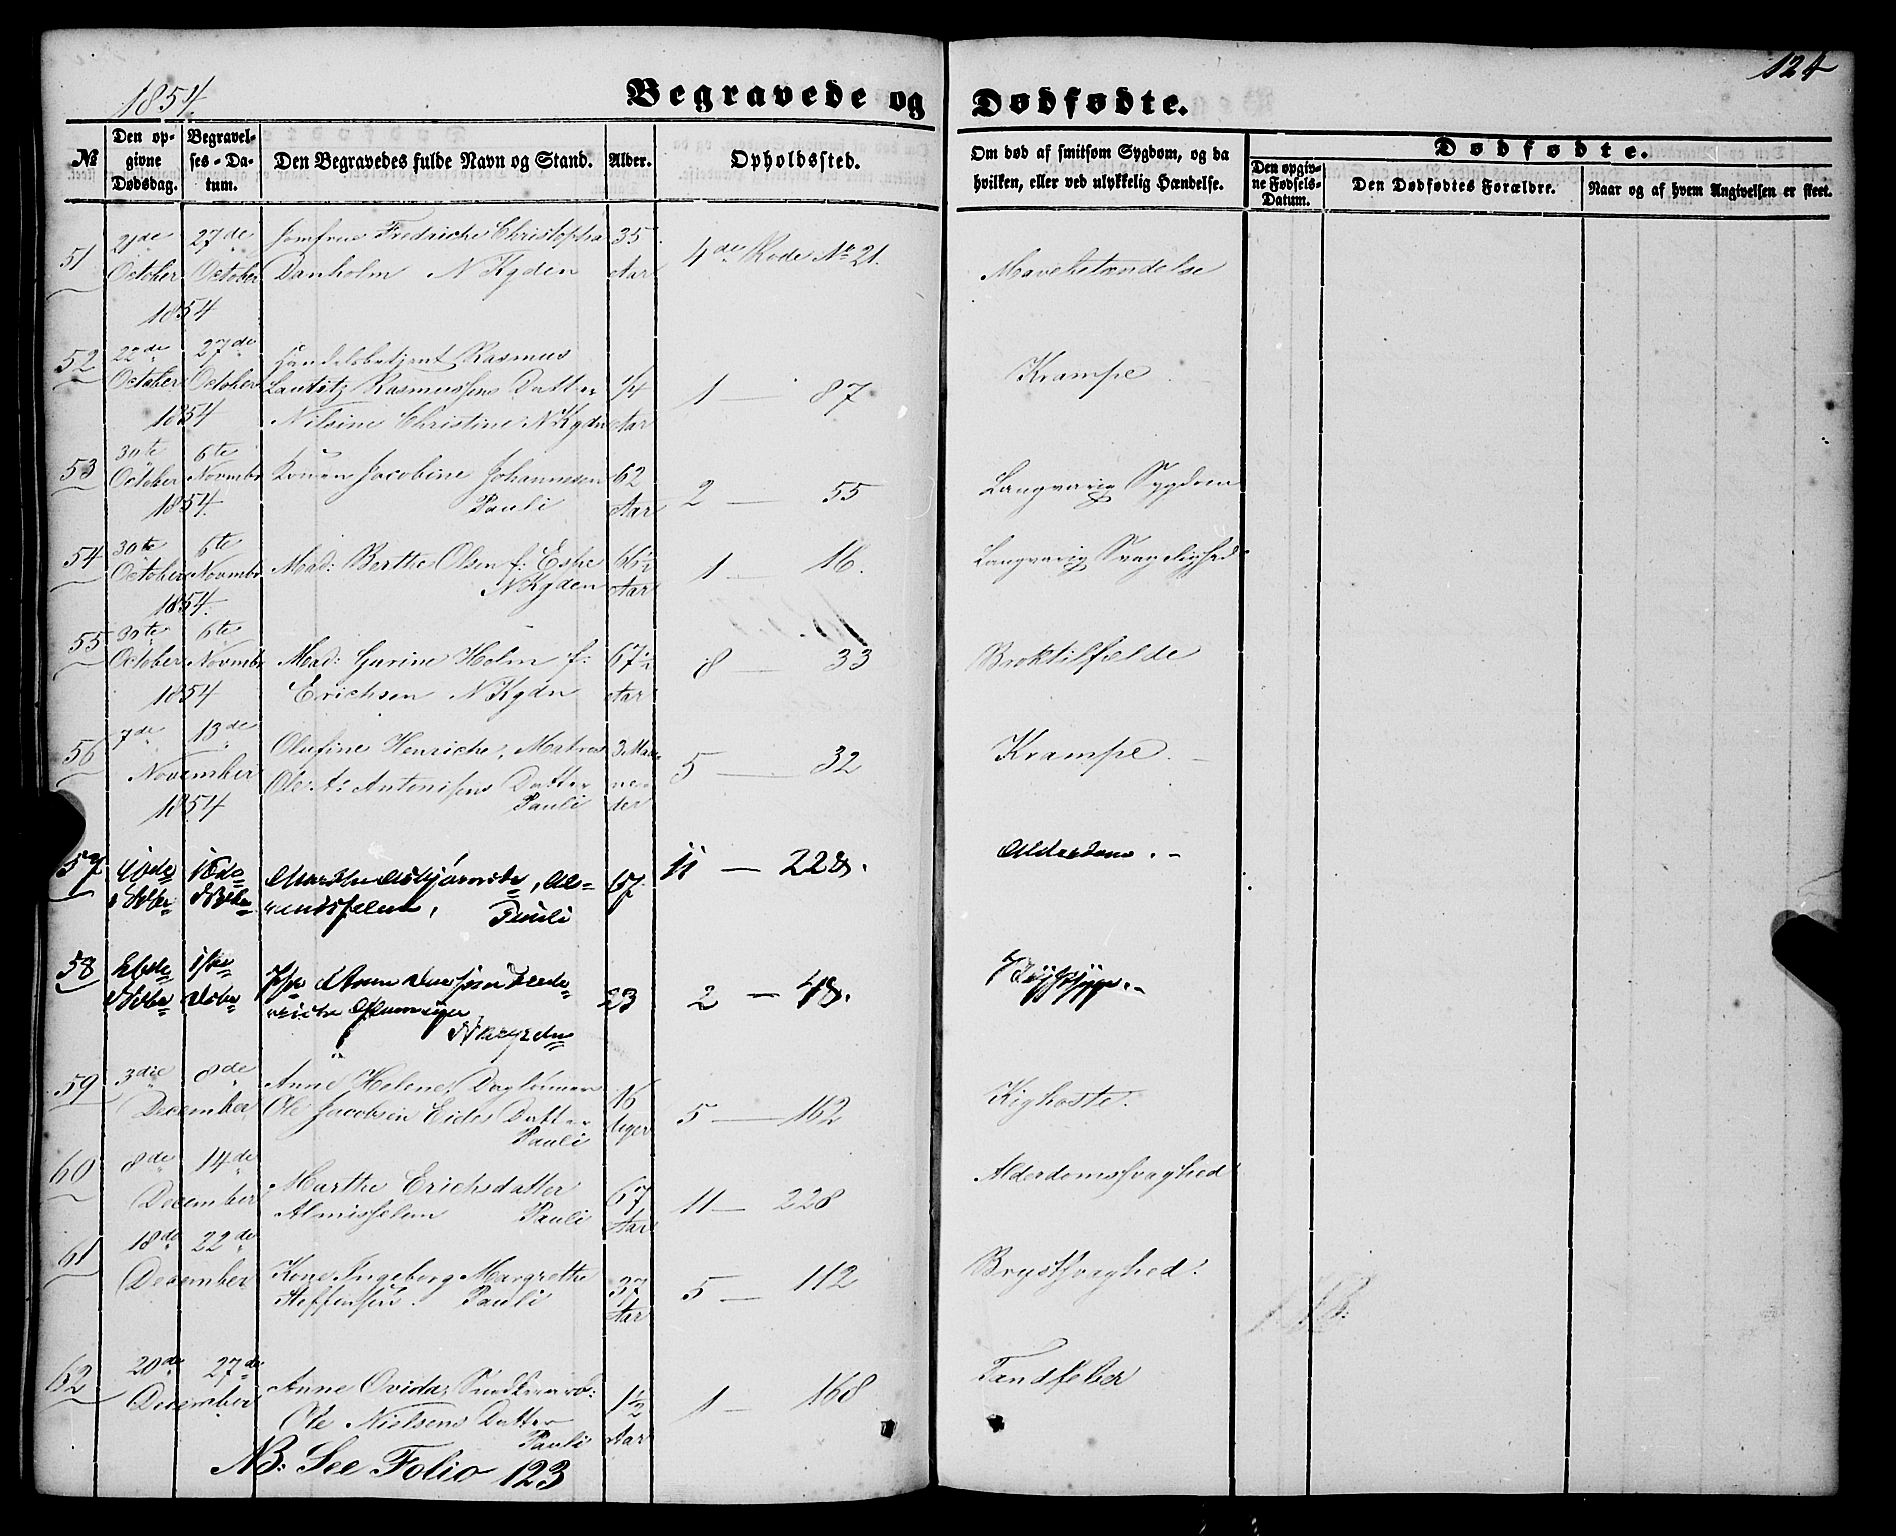 1854
Begravede og Dødfødte.
124
№
Den opgivne Dødsdag.
Begravelses-Datum.
Den Begravedes fulde Navn og Stand.
Alder.
Opholdssted.
Om død af smitsom Sygdom, og da hvilken, eller ved ulykkelig Hændelse.
Dødfødte.
Den opgivne Fødsels-Datum.
Den Dødfødtes Forældre.
Naar og af hvem Angivelsen er skeet.
51 21de 27de Jomfrue Fredriche 35
October October Danholm N Kgden Aar 4de Rode No 21.
1854
52 22de 27de Handelsbetjent Rasmus Krampe
October October Lautitz Rasmussens Datter 1/4 1 — 87
1854 Nilsine Christine N Kgdn Aar
53 30te 6te
October Novmbr Konen Jacobine Johannesen 62 2 — 55 Langvarig Sygdom
1854. Pauli Aar
54 30te 6te Mad: Berthe Olsen f: 66½ 1 — 16. Langvarig Svagelighed
October Novmbr N Kgden Aar
1854.
55 30te 6te
October Novmbr Mad: Gurine Holm f: 67½ 8 — 33 Broktilfælde
1854 Erichsen N Kgdn Aar
56 7de 13de Olufine Henriche, Matros 3 Maa 5 — 32 Krampe.
November Ole A: Antonisens Datter ne-
1854 Pauli der
57 11 — 228. Alderdom.
Pauli 67
58
23 2 — 48.
59 3die 8de Anne Helene, Kighoste.
December Ole Jacobsen Eides Datter 16 5 — 162
Pauli Uger
60 8de 14de Marthe Erichsdatter 67 11 — 228 Alderdomssvaghed
December Almisselem Pauli Aar
61 18de 22de Kone Ingeborg Margrethe 37 5 — 112 Brystsvaghed.
December Steffensen. Pauli Aar
62 20de 27de Anne 1½ 1 — 168 Tandfeber
December Ole Nielsens Datter
Pauli Aar
NB: See Folio 123